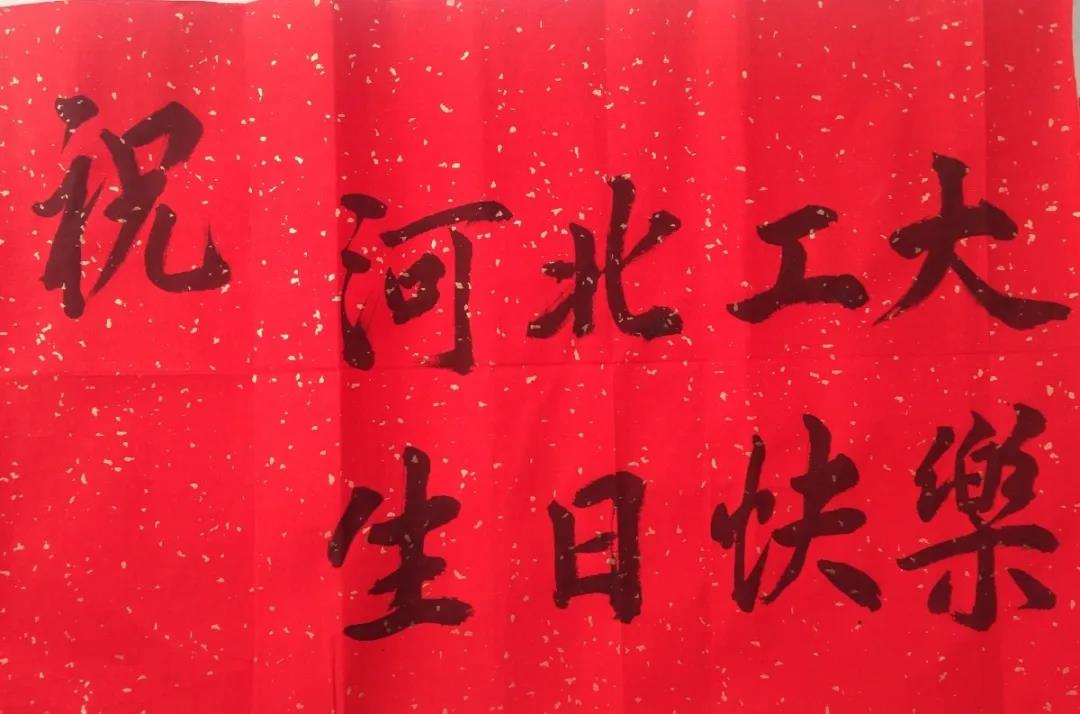 祝
河北工大
生日快樂